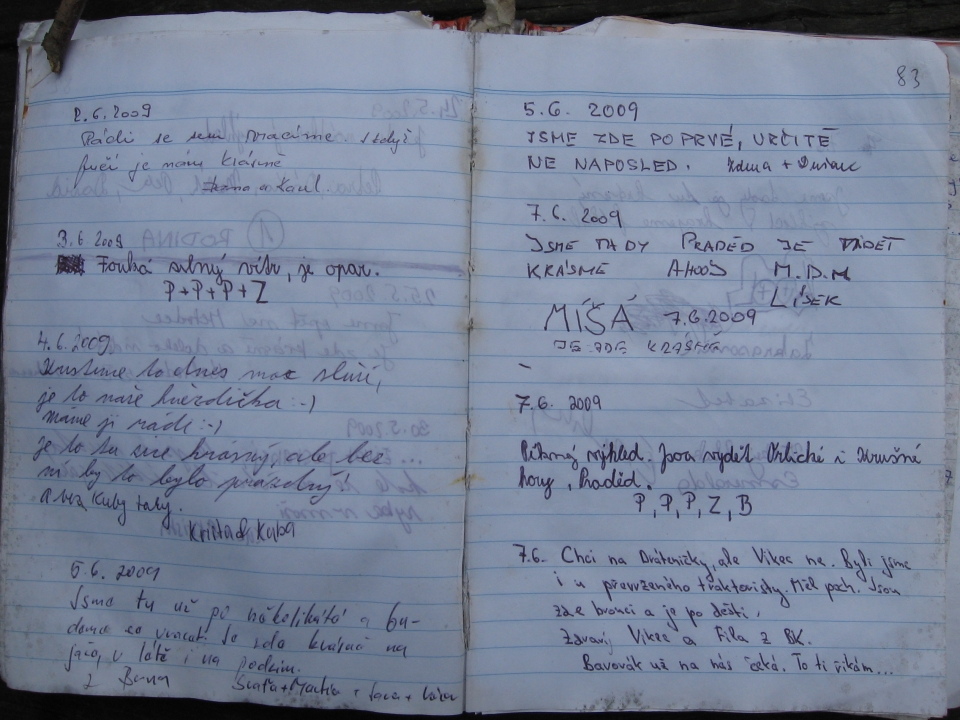 2.6.2009
Rádi se sem vracíme. I když
fučí je nám krásně
3.6 2009
Fouká silný vítr, je opar.
P+P+P+Z
4.6.2009
to dnes moc sluší,
je to naše hvězdička :-)
máme ji rádi :-)
je to tu sice krásný, ale bez
ní by to bylo prázdný!
A bez Kuby taky.
Kuba
5.6. 2009
Jsme tu už po několikáté a bu-
deme se vracet. Je zde krásně na
jaře, v létě i na podzim.
z Brna
83
5.6. 2009
JSME ZDE POPRVÉ, URČITĚ
NE NAPOSLED.
7.6. 2009
JSME TADY PRADĚD JE VIDĚT
KRÁSMĚ AHOJ M.D.M
LÍSEK
MÍŠÁ 7.6.2009
JE ZDE KRÁSNĚ
7.6. 2009
Pěkný výhled. Jsou vydět Orlické i
hory, Praděd.
P, P, P, Z, B
7.6. Chci na Dráteničky, ale Vikec ne. Byli jsme
i u převrženého traktoristy. Měl pech. Jsou
zde bronci a je po dešti.
Zdraví Vikec a Fila z BK.
Bavorák už na nás čeká. To ti říkám...